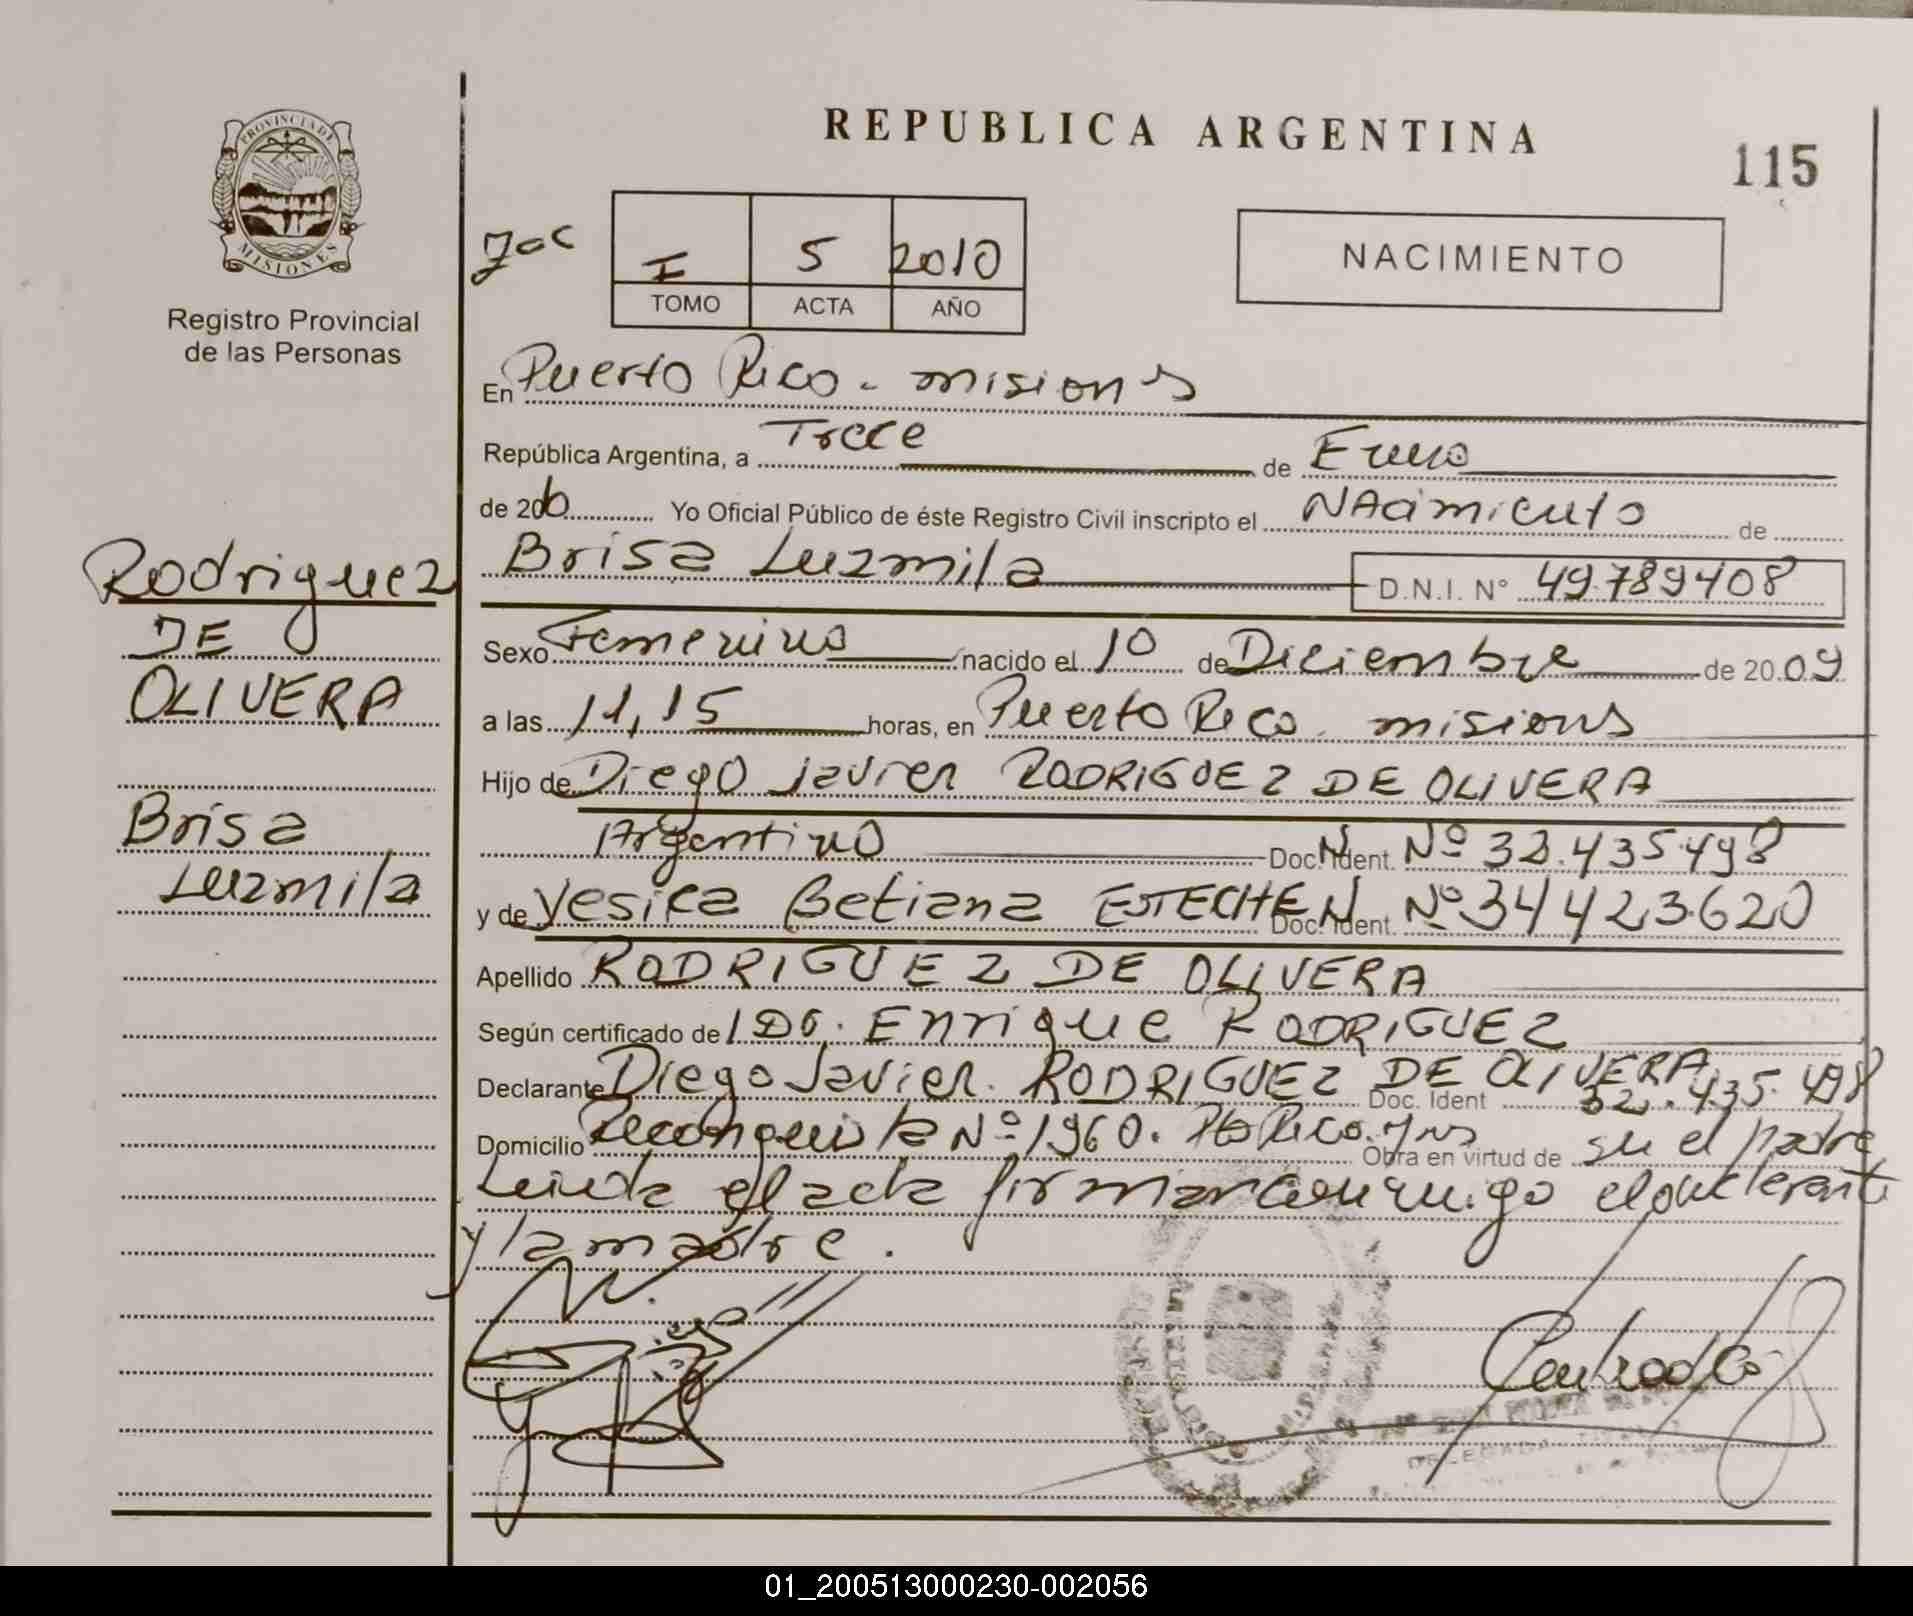 REPUBLICA ARGENTINA
115
PROVINCIA DE
MISIONES
Registro Provincial
de las Personas
I 5 2010
TOMO ACTA AÑO
NACIMIENTO
En Puerto Rico - misiones
República Argentina, a Trece de Enero
de 2010 Yo Oficial Público de éste Registro Civil inscripto el NAcimiento de
Brisa Luzmila D.N.I. N° 49.789408
Rodriguez
DE
OLIVERA
Brisa
Luzmila
Sexo Femenino nacido el 10 de Diciembre de 2009
a las 11,15 horas, en Puerto Rico misiones
Hijo de Diego Javier RODRIGUEZ DE OLIVERA
Argentino Doc. Ident. Nº 32.435498
y de Yesica Betiana ESTECHE Doc. Ident. Nº 34423.620
Apellido RODRIGUEZ DE OLIVERA
Según certificado de Enrique RODRIGUEZ
Declarante Diego Javier RODRIGUEZ DE OLIVERA Doc. Ident 32.435.498
Domicilio Reconquista Nº 1960. Pto Rico. Mns Obra en virtud de su el padre
Leida el acta firman conmigo el declarante
y la madre.
01_200513000230-002056